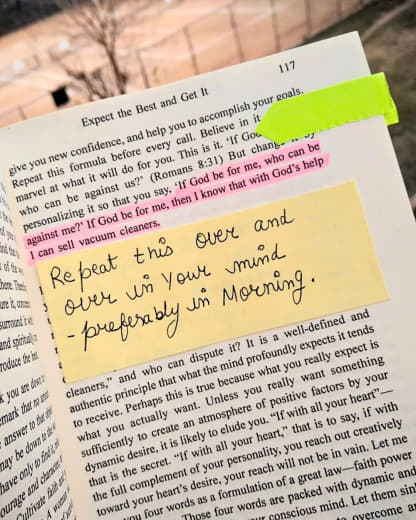 117
Expect the Best and Get It
give you new confidence, and help you to accomplish your goals.
Repeat this formula before every call. Believe in it
marvel at what it will do for you. This is it. 'If God
who can be against us?' (Romans 8:31) But change it by
personalizing it so that you say, 'If God be for me, who can be
against me?' If God be for me, then I know that with God's help
I can sell vacuum cleaners.
Repeat this over and
over in your mind
- preferably in Morning.
cleaners," and who can dispute it? It is a well-defined and
authentic principle that what the mind profoundly expects it tends
to receive. Perhaps this is true because what you really expect is
what you actually want. Unless you really want something
sufficiently to create an atmosphere of positive factors by your
dynamic desire, it is likely to elude you. "If with all your heart"—
that is the secret. "If with all your heart," that is to say, if with
the full complement of your personality, you reach out creatively
toward your heart's desire, your reach will not be in vain. Let me
you four words as a formulation of a great law—faith power
Those four words are packed dynamic and
conscious mind. Let them sink
overcome